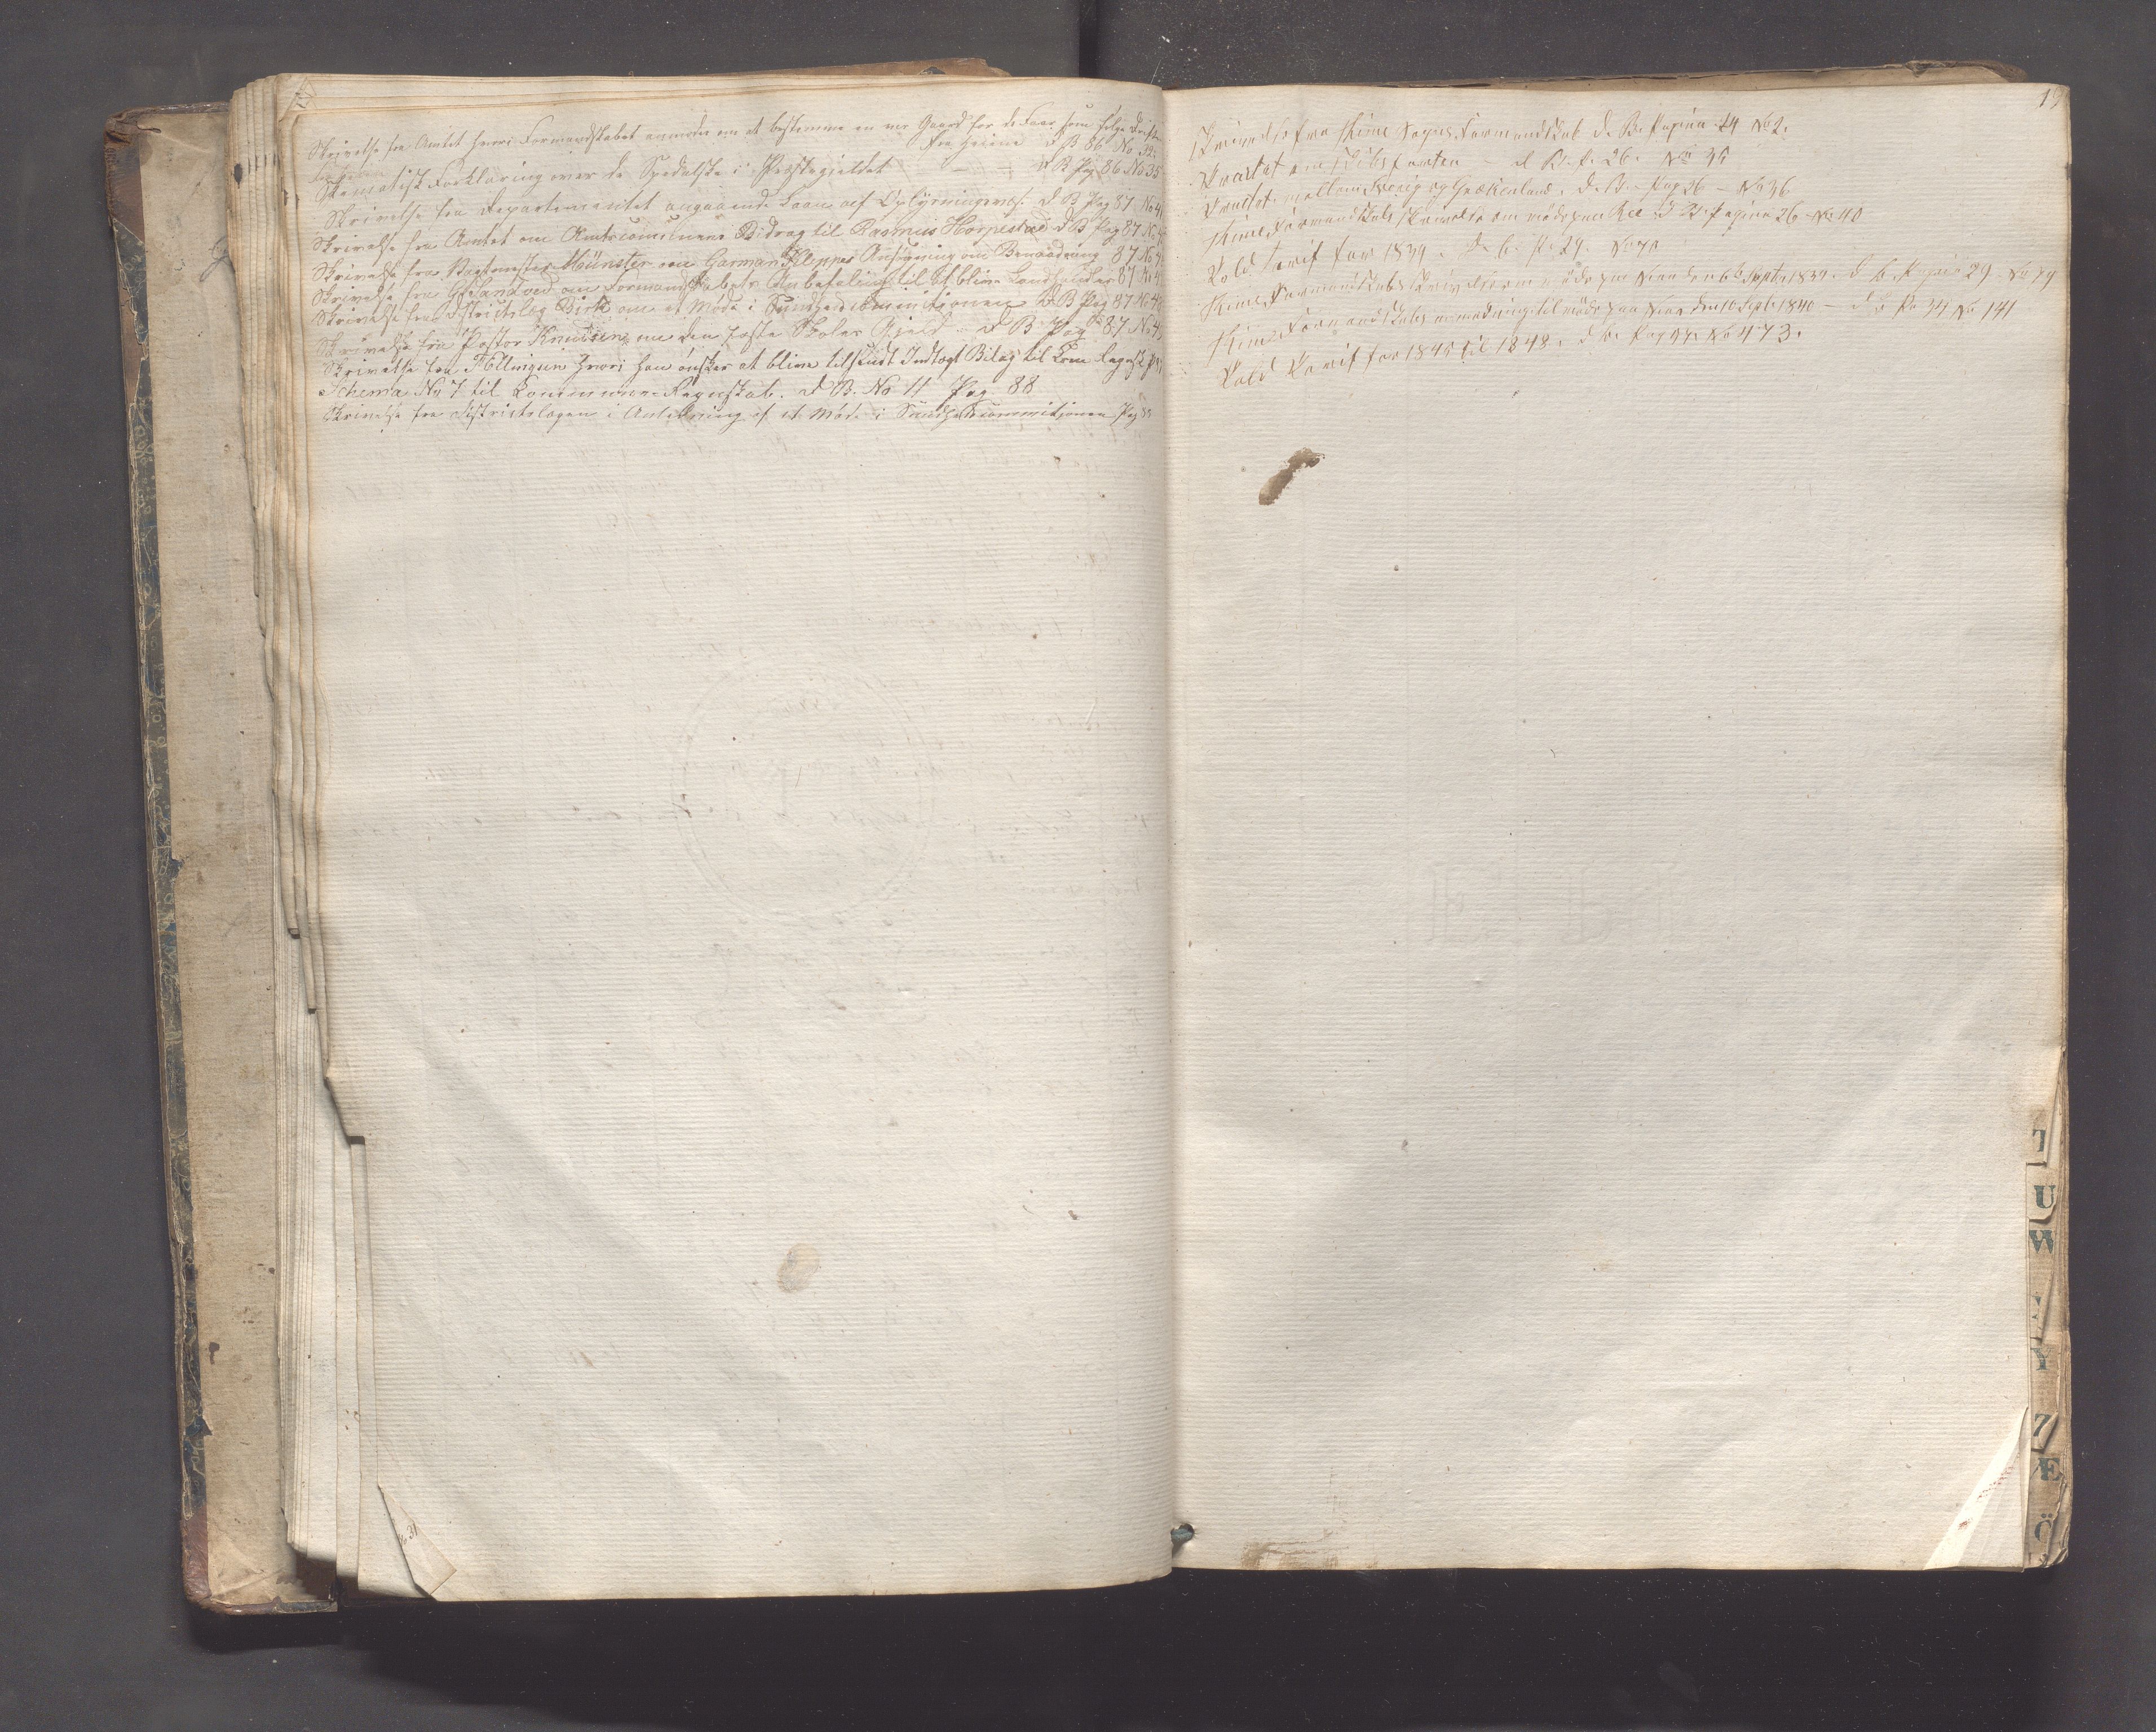 Skrivelse fra Amtet hvori Formandskabet anmodes om at bestemme en vis Gaard for de Faar som følge Drifte
fra Heiene d B 86 No 32.
Skematisk Forklaring over de Spedalske i Præstegjeldet d B Pag 86 No 35
Skrivelse fra Departementet angaaende Laan af Oplysningsvæs. d B Pag 87 No 41
Skrivelse fra Amtet om Amtscommunens Bidrag til Rasmus Horpestad d B Pag 87 No 4
Skrivelse fra Vagtmester Münster om Garman Kleppes Ansøgning om Benaadning 87 No 4
Skrivelse fra G. Sandved om Formandskabets Anbefaling til at blive Landhandler 87 No 4
Skrivelse fra Districtslæg Birk om et Møde i Sundhedscommitionen d B Pag 87 No 4
Skrivelse fra Pastor Knudsen om den faste Skoles Gjeld d B Pag 87 No 4
Skrivelse fra Kellingun hvori han ønsker at blive tilsendt Indtægt Bilag til Com Regnsk
Schema No 7 til Communens Regnskab. d B. No 11 Pag 88
Skrivelse fra Districtslægen i Anledning af et Møde i Sundhedscommitionen Pag 88
19
Skrivelse fra Thime Sogns Formandskab d. B. Pagina 24 No 2.
Tractat om Skibsfarten – d B. P. 26. No 35
Tractat mellem Sverig og Grækenland. d. B. – Pag 26 – No 36
Thime Formandskabs Skrivelse om møde paa Ree d B. Pagina 26 – No 40
Told Tarif for 1839. d. B. P. 29. No 70
Thime Formandskabs Skrivelse om møde paa den 6 Septbr 1839. d B. Pagina 29 No 79
Thime Formandskabs anmodning til møde paa den 10 Septbr 1840 – d B Pa 34 No 141
Told Tarif for 1845 til 1848. d B. Pag No 473.
T
U
W
Y
Z
Æ
Ö
No 31